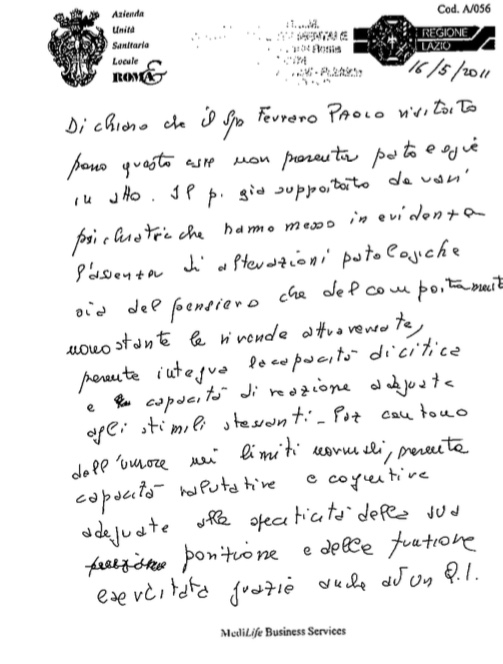 Azienda
Unità
Sanitaria
Locale
ROMA G
Cod. A/056
REGIONE
LAZIO
16/5/2011
Dichiaro che il Sig Ferraro PAOLO visitato
questo non presenta patologie
in atto. Il p. già supportato da vari
psichiatri che hanno messo in evidenza
l'assenza di alterazioni patologiche
sia del pensiero che del comportamento
nonostante le vicende attraversate,
presenta integra la capacità di critica
e capacità di reazione adeguata
agli stimili stressanti - Paz con tono
dell'umore nei limiti normali, presenta
capacità valutative e cognitive
adeguate alla specificità della sua
posizione e delle funzione
esercitata grazie anche ad un Q.I.
MediLife Business Services